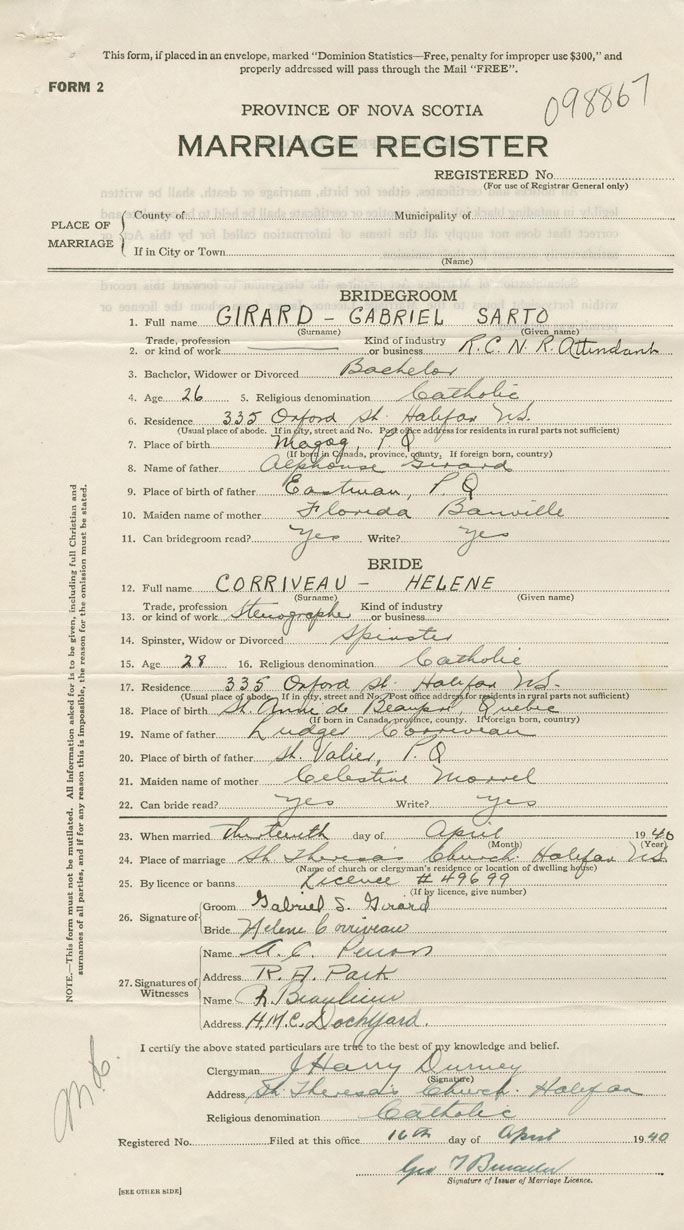 This form, if placed in an envelope, marked "Dominion Statistics—Free, penalty for improper use $300," and
properly addressed will pass through the Mail "FREE".
FORM 2
098867
PROVINCE OF NOVA SCOTIA
MARRIAGE REGISTER
REGISTERED No.
(For use of Registrar General only)
PLACE OF MARRIAGE
County of Municipality of
If in City or Town
(Name)
BRIDEGROOM
1. Full name GIRARD - GABRIEL SARTO
(Surname) (Given name)
2. Trade, profession or kind of work Kind of industry or business R.C.N.R. Attendant
3. Bachelor, Widower or Divorced Bachelor
4. Age 26 5. Religious denomination Catholic
6. Residence 335 Oxford St. Halifax N.S.
(Usual place of abode. If in city, street and No. Post office address for residents in rural parts not sufficient)
7. Place of birth Magog, P.Q
(If born in Canada, province, county. If foreign born, country)
8. Name of father Alphonse Girard
9. Place of birth of father Eastman, P.Q
10. Maiden name of mother Florida Banville
11. Can bridegroom read? Yes Write? Yes
BRIDE
12. Full name CORRIVEAU - HELENE
(Surname) (Given name)
13. Trade, profession or kind of work Stenographer Kind of industry or business
14. Spinster, Widow or Divorced Spinster
15. Age 28 16. Religious denomination Catholic
17. Residence 335 Oxford St. Halifax N.S.
(Usual place of abode. If in city, street and No. Post office address for residents in rural parts not sufficient)
18. Place of birth St. Anne de Beaupré, Quebec
(If born in Canada, province, county. If foreign born, country)
19. Name of father Ludger Corriveau
20. Place of birth of father St. Valier, P.Q
21. Maiden name of mother Celestine Morrel
22. Can bride read? Yes Write? Yes
23. When married thirteenth day of April 1940
(Month) (Year)
24. Place of marriage St. Theresa's Church Halifax N.S.
(Name of church or clergyman's residence or location of dwelling house)
25. By licence or banns Licence # 49699
(If by licence, give number)
26. Signature of
Groom Gabriel S. Girard
Bride Helene Corriveau
27. Signatures of Witnesses
Name A. C.
Address R. A. Park
Name Beaulieu
Address H.M.C. Dockyard.
I certify the above stated particulars are true to the best of my knowledge and belief.
Clergyman J Harry Durney
(Signature)
Address St. Theresa's Church Halifax
Religious denomination Catholic
Registered No. Filed at this office 16th day of April 1940
Geo
Signature of Issuer of Marriage Licence.
[SEE OTHER SIDE]
NOTE.—This form must not be mutilated. All information asked for is to be given, including full Christian and
surnames of all parties, and if for any reason this is impossible, the reason for the omission must be stated.